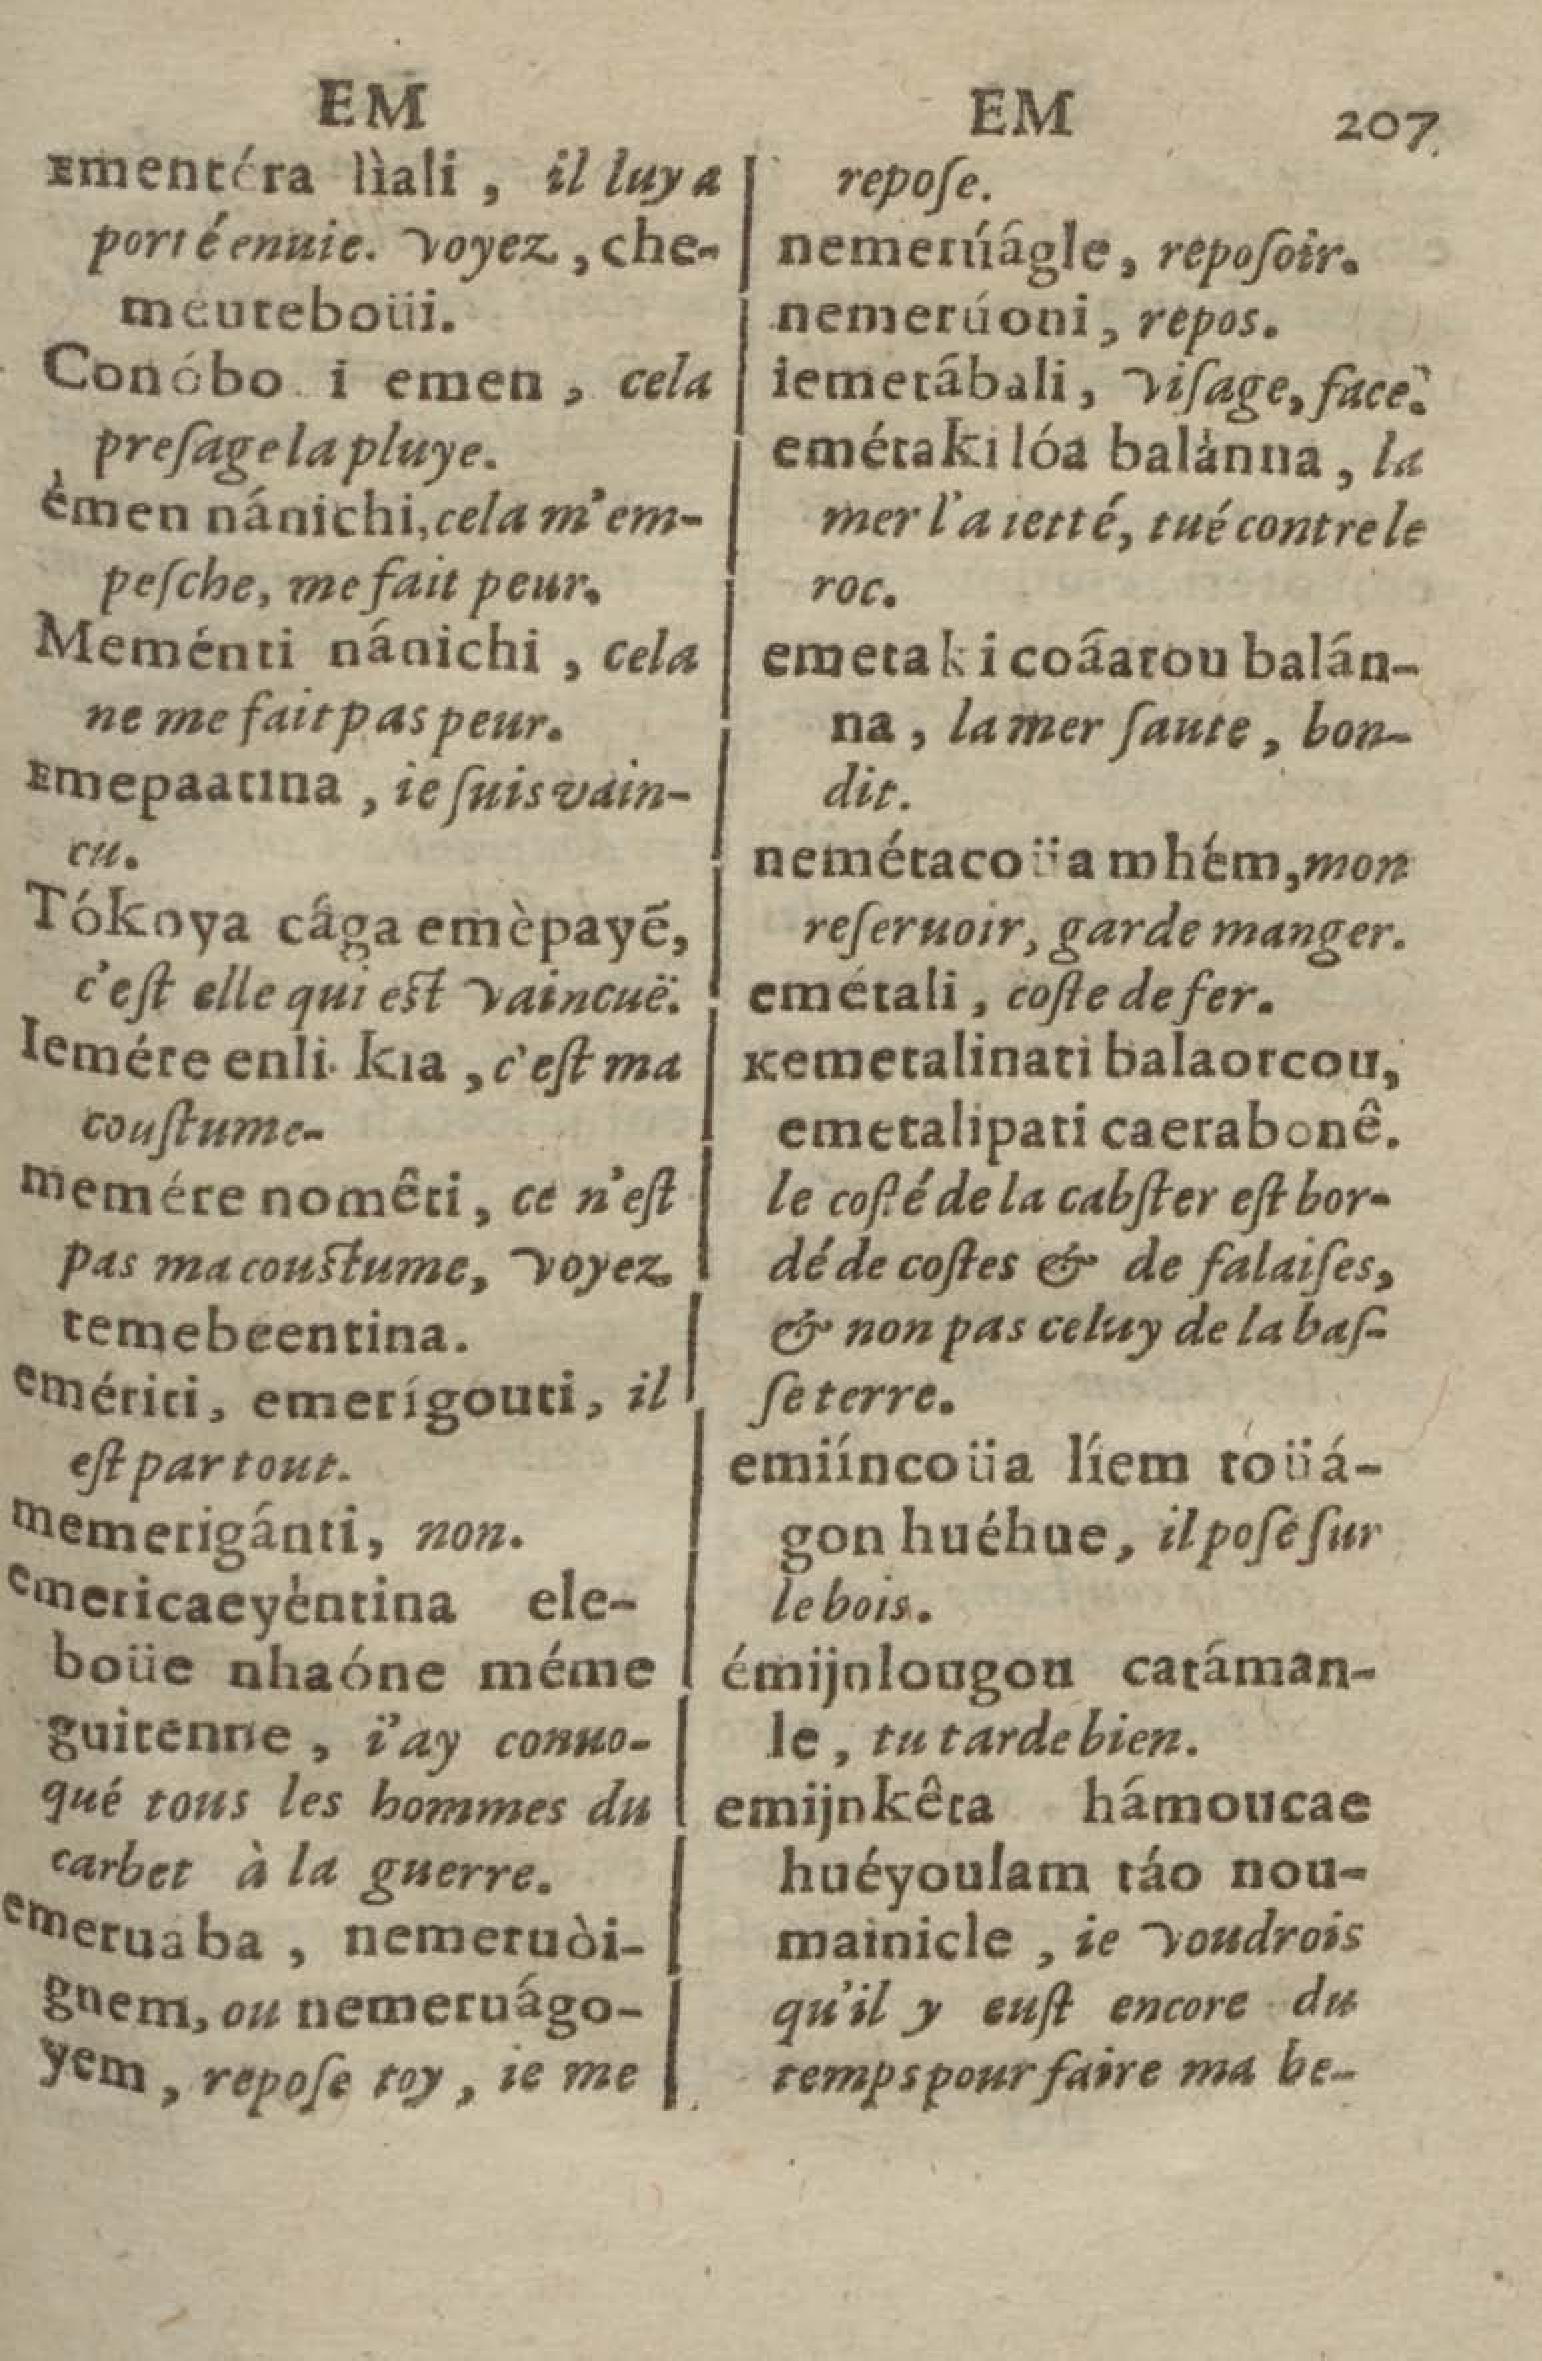 EM
ementéra lìali, il luy a
porté enuie. Voyez, che-
meuteboüi.
Conóbo i emen, cela
preſage la pluye.
émen nánichi, cela m'em-
peſche, me fait peur.
Meménti nánichi, cela
ne me fait pas peur.
Emepaatina, ie ſuis vain-
cu.
Tókoya câga emèpayẽ,
c'eſt elle qui eſt Vaincuë.
Iemére enli kia, c'eſt ma
couſtume-
memére nomêti, ce n'eſt
pas ma couſtume, Voyez
temebeentina.
emériti, emerígouti, il
eſt par tout.
memerigánti, non.
emericaeyèntina ele-
boüe nhaóne méme
guitenne, i'ay conuo-
qué tous les hommes du
carbet à la guerre.
emeruába, nemeruòi-
gnem, ou nemeruágo-
yem, repoſe toy, ie me
EM 207.
repoſe.
nemerúâgle, repoſoir.
nemerúoni, repos.
iemetâbali, Viſage, face.
emétaki lóa balànna, la
mer l'a ietté, tué contre le
roc.
emetaki coâatou balán-
na, la mer ſaute, bon-
dit.
nemétacoüa mhém, mon
reſeruoir, garde manger.
emétali, coſte de fer.
Kemetalinati balaorcou,
emetalipati caerabonê.
le coſté de la cabſter eſt bor-
dé de coſtes & de falaiſes,
& non pas celuy de la baſ-
ſe terre.
emiíncoüa líem toüá-
gon huéhue, il poſe ſur
le bois.
émijnlougou catáman-
le, tu tarde bien.
emijnkêta hámoucae
huéyoulam táo nou-
mainicle, ie Voudrois
qu'il y euſt encore du
temps pour faire ma be-